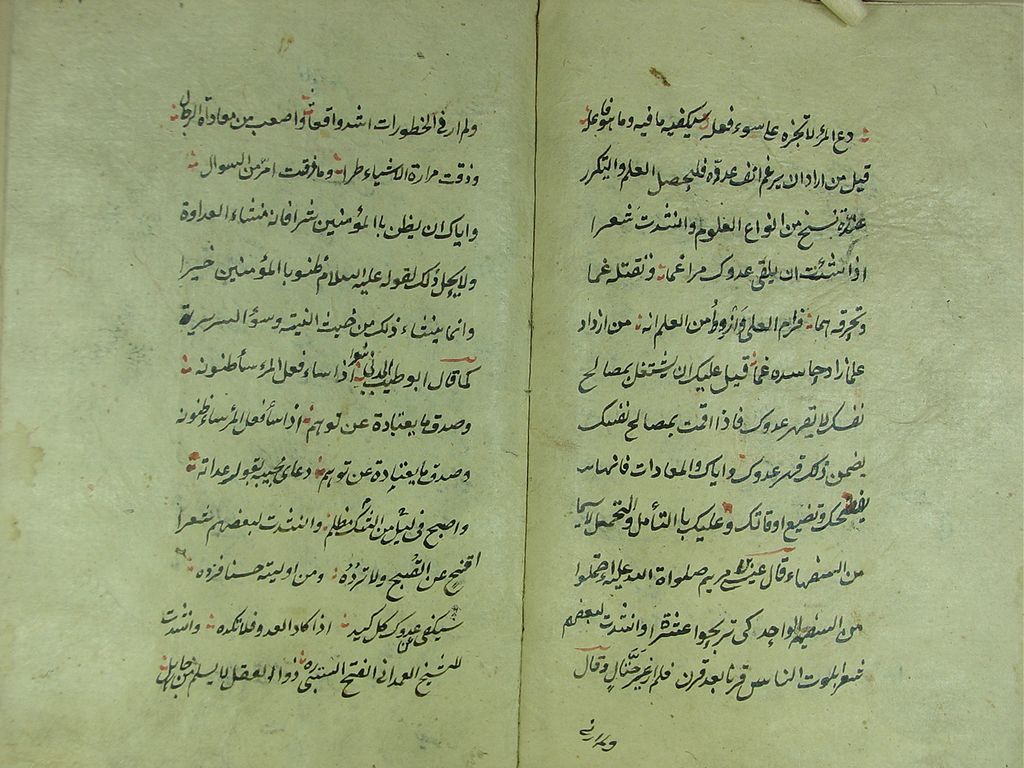 دع المرء لا تجزه على سوء فعله سيكفيه ما فيه وما هو فاعله
قيل من اراد ان يرغم انف عدوه فليحصل العلم والتكرر
نسخ من انواع العلوم وانشدت شعرا
اذا شئت ان يلقى عدوك مراغما وتقتله غما
وتحرقه هما فرام العلى وازدد من العلم انه من ازداد
علما زاد حاسده غما قيل عليك ان يشتغل بمصالح
نفسك لا يقهر عدوك فاذا اقمت بمصالح نفسك
يضمن ذلك قهر عدوك واياك والمعادات فانها
تفضحك وتضيع اوقاتك وعليك باالتأمل والتحمل لا سيما
من السفهاء قال عيسى بن مريم صلواة الله عليه احتملوا
من السفيه الواحد كى تربحوا عشرا وانشدت لبعضهم
شعر بلوت الناس قرنا بعد قرن فلم ار غير ختال وقال
ولم ار فى
ولم ار فى الخطورات اشد واقعا واصعب من معاداة الرجال
وذقت مرارة الاشياء طرا وما ذقت امر من السوال
واياك ان يظن باالمؤمنين شرا فانه منشاء العداوة
ولا يحل ذلك لقوله عليه السلام ظنوا باالمؤمنين خيرا
وانما ينشاء ذلك من خبث النية وسوء السريرة
كما قال ابو طيب اذا ساء فعل المرء ساء ظنونه
وصدق ما يعتادة عن توهم اذا ساء فعل المرء ساء ظنونه
وصدق ما يعتادة عن توهم دعاى محبيه بقول عداته
واصبح فى ليل من الشك مظلم وانشدت لبعضهم شعرا
عن القبيح ولا ترده ومن اوليته حسنا فزده
سيكفى عن عدوك كل كيد اذا كاد العدو فلا تكده وانشدت
للشيخ العمدانى الفتح البستى ذو العقل لا يسلم من جاهل